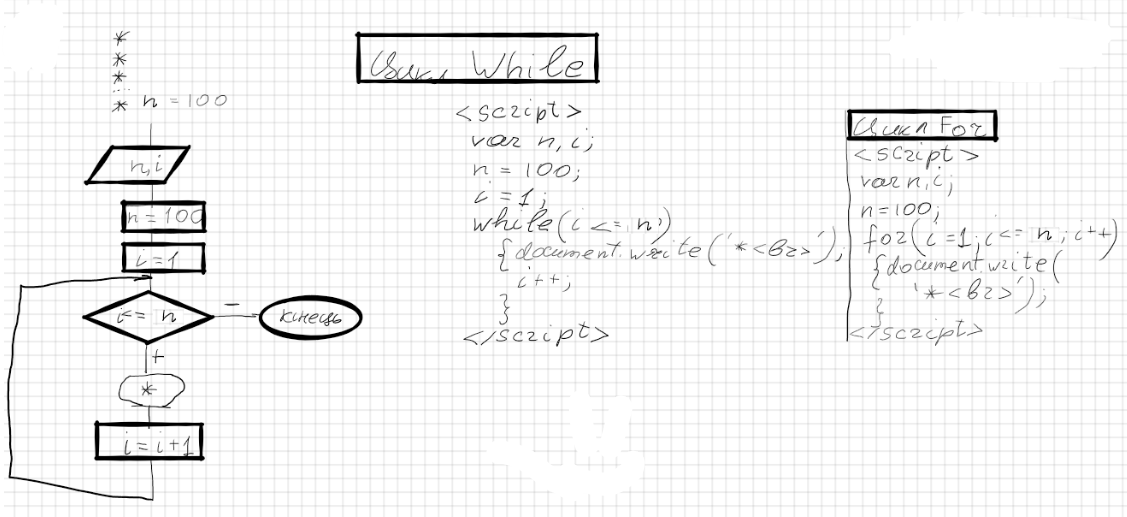 *
*
*
...
* n = 100
n, i
n = 100
i = 1
i <= n
–
кінець
+
*
i = i + 1
Цикл While
<script>
var n, i;
n = 100;
i = 1;
while(i <= n)
{document.write('*<br>');
i++;
}
</script>
Цикл For
<script>
var n, i;
n=100;
for(i=1; i<= n; i++)
{document.write(
'*<br>');
}
</script>